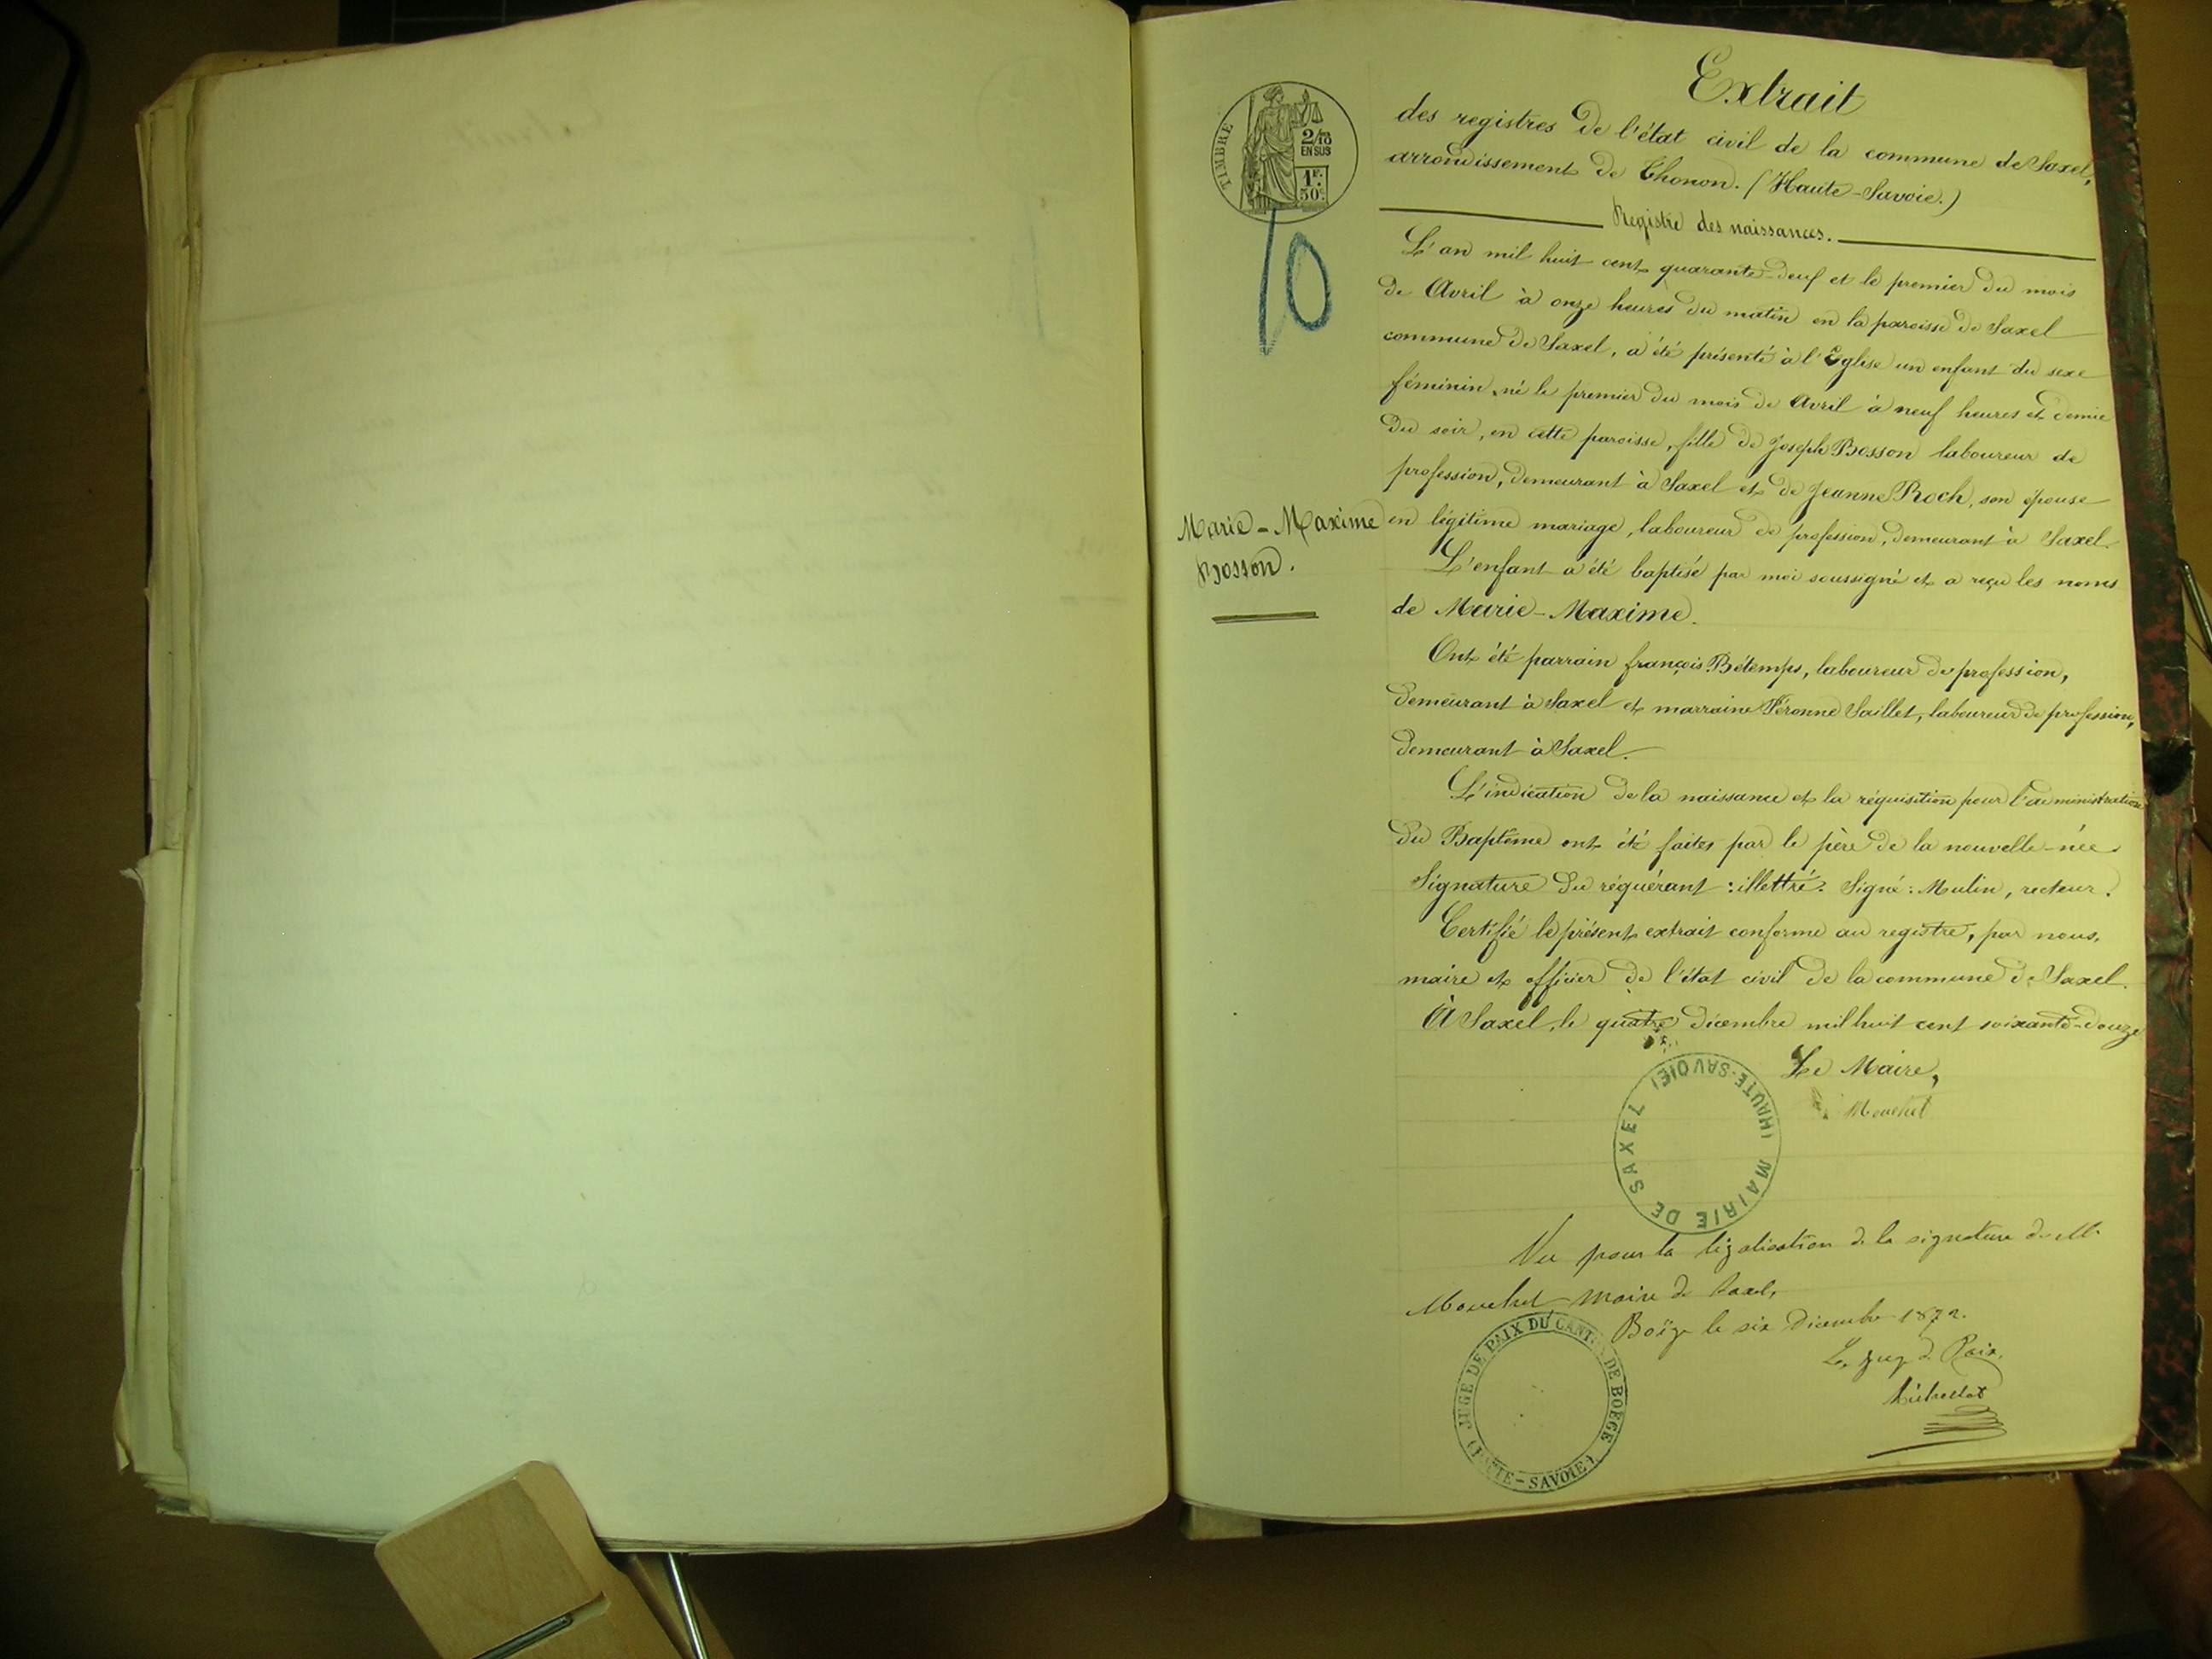 Extrait
des registres de l'état civil de la commune de Saxel,
arrondissement de Thonon. (Haute-Savoie.)
Registre des naissances.
TIMBRE
2/10
EN SUS
1F.
50c.
10
L'an mil huit cent quarante-deuf et le premier du mois
de Avril à onze heures du matin en la paroisse de Saxel
commune de Saxel, a été présenté à l'Eglise un enfant du sexe
féminin, né le premier du mois de Avril à neuf heures et demie
du soir, en cette paroisse, fille de Joseph Bosson laboureur de
profession, demeurant à Saxel et de Jeanne Roch, son épouse
en légitime mariage, laboureur de profession, demeurant à Saxel.
Marie-Maxime
Bosson.
L'enfant a été baptisé par moi soussigné et a reçu les noms
de Marie-Maxime.
Ont été parrain françois Bétemps, laboureur de profession,
demeurant à Saxel et marraine Péronne Saillet, laboureur de profession,
demeurant à Saxel.
L'indication de la naissance et la réquisition pour l'administration
du Baptême ont été faites par le père de la nouvelle-née
Signature du réquérant : illettré. Signé : Mulin, recteur.
Certifié le présent extrait conforme au registre, par nous,
maire et officier de l'état civil de la commune de Saxel.
À Saxel, le quatre décembre mil huit cent soixante-douze
Le Maire,
Mouchet
MAIRIE DE SAXEL (HAUTE-SAVOIE)
Vu pour la légalisation de la signature de M.
Mouchet maire de Saxel,
Boëge le six Décembre 1872.
Le Juge de Paix,
JUGE DE PAIX DU CANT. DE BOEGE (HAUTE-SAVOIE)